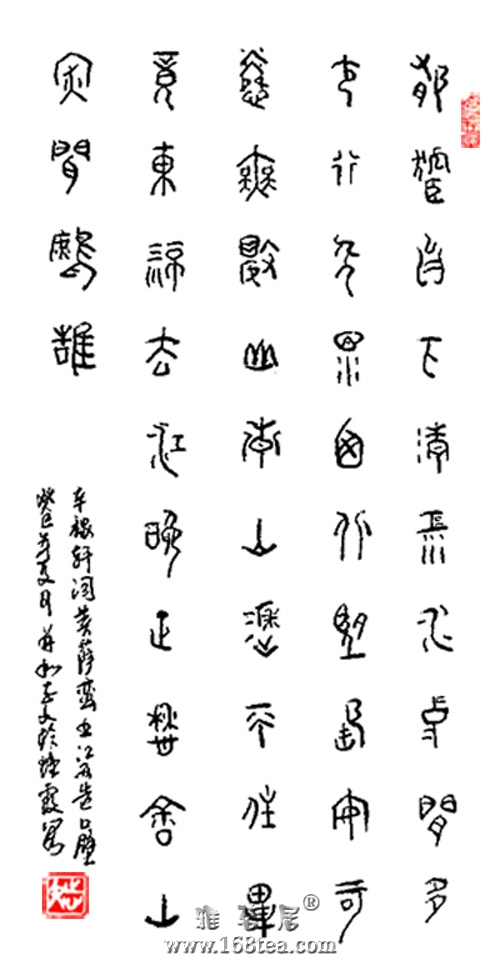 鬱孤臺下清江水中間多
少行人淚西北望長安可
憐無數山青山遮不住畢
竟東流去江晚正愁余山
深聞鷓鴣
辛稼軒詞菩薩蠻書江西造口壁
癸巳年夏月
雅茗居®
www.168tea.com